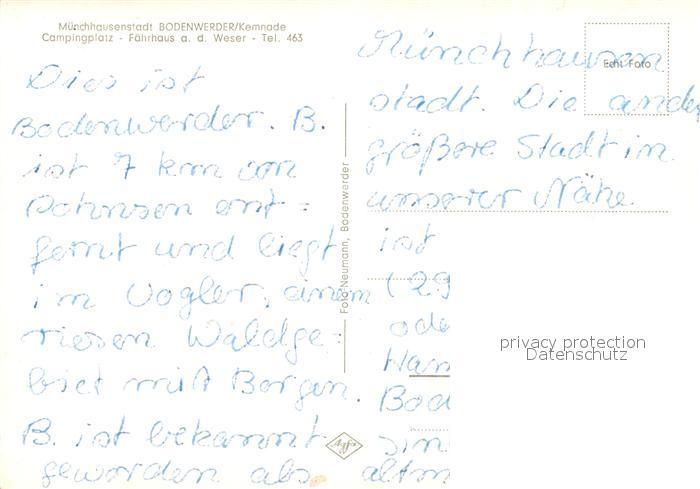 Münchhausenstadt BODENWERDER/Kemnade
Campingplatz - Fährhaus a. d. Weser - Tel. 463
Dies ist
Bodenwerder. B.
ist 7 km von
ent=
fernt und liegt
im Vogler, einem
riesen Waldge=
biet mit Bergen.
B. ist bekannt
geworden als
Foto-Neumann, Bodenwerder
Agfa
Münchhausen
stadt. Die ander
größere Stadt in
unserer Nähe
ist
(29
ode
Ham
Bod
sin
altm
Echt Foto
privacy protection
Datenschutz